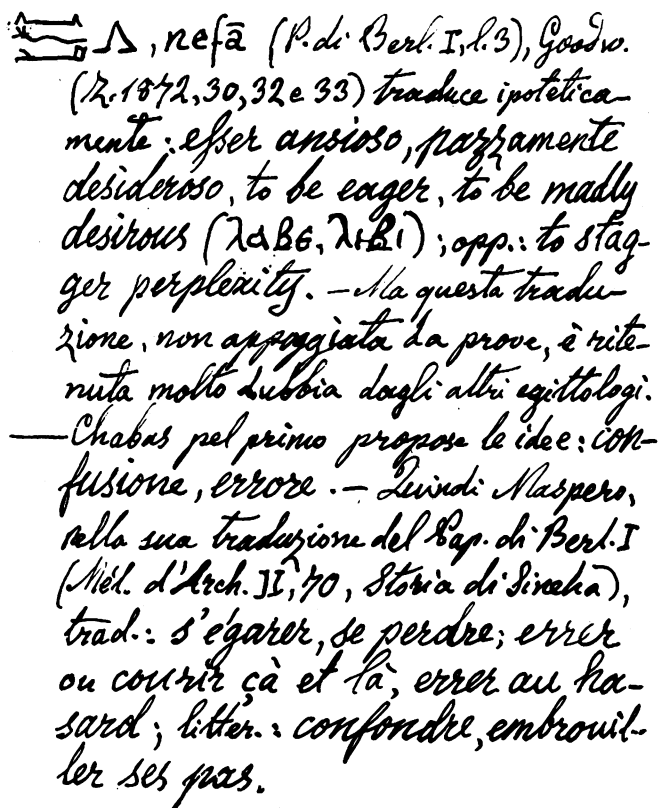 , nefā (P. di Berl. I, l. 3), Goodw.
(Z. 1872, 30, 32 e 33) traduce ipotetica-
mente: esser ansioso, pazzamente
desideroso, to be eager, to be madly
desirous (ⲗⲁⲃⲉ, ⲗⲓⲃⲓ); opp.: to stag-
ger perplexity. — Ma questa tradu-
zione, non appoggiata da prove, è rite-
nuta molto dubbia dagli altri egittologi.
— Chabas pel primo propose le idee: con-
fusione, errore. — Quindi Maspero,
nella sua traduzione del Pap. di Berl. I
(Mél. d'Arch. II, 70, Storia di Sineha),
trad.: s'égarer, se perdre; errer
ou courir çà et là, errer au ha-
sard; litter.: confondre, embrouil-
ler ses pas.